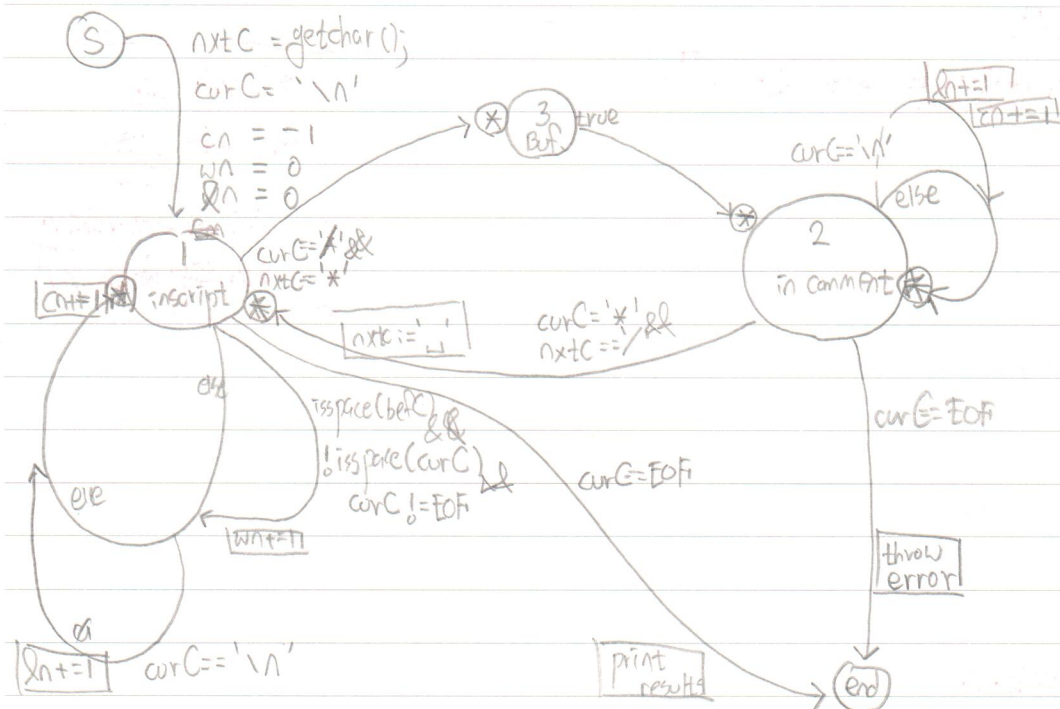 S
nxtC = getchar();
curC = '\n'
cn = -1
wn = 0
ln = 0
* 3 true
Buf.
ln+=1
cn+=1
curC=='\n'
else
*
2
in comment *
1
inscript
cn+=1 *
*
curC=='/' &&
nxtC=='*'
nxtC:='␣'
curC=='*' &&
nxtC=='/'
else
isspace(befC) &&
!isspace(curC) &&
curC!=EOF
wn+=1
curC=EOF
curC=EOF
else
throw
error
ln+=1
curC=='\n'
print
results
end